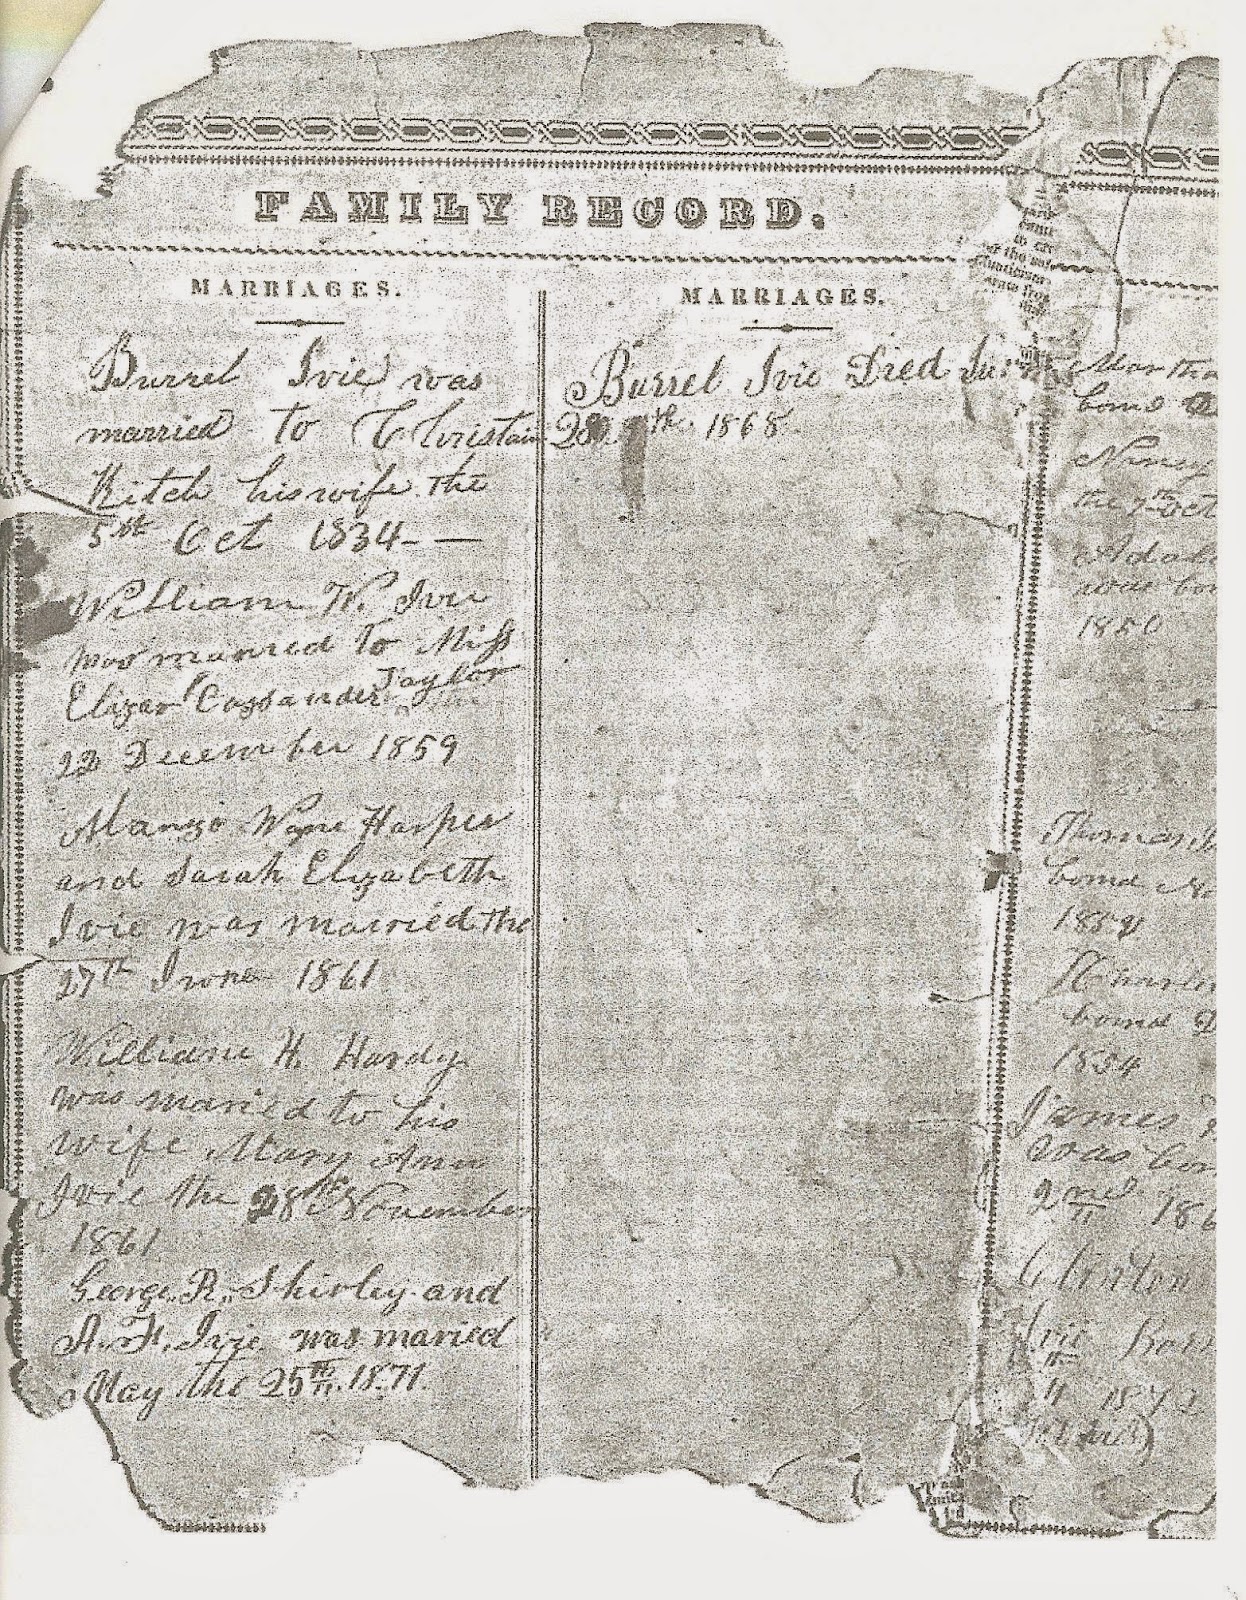 FAMILY RECORD.
MARRIAGES.
Burrel Ivie was
married to Christain
Kitch his wife the
5st Oct 1834
William W. Ivie
was married to Miss
Taylor
Elizar Cassander
22 December 1859
Alanzo Wane Harper
and Sarah Elizabeth
Ivie was married the
27th June 1861
William H. Hardy
was maried to his
wife Mary Ann
Ivie the 28th November
1861
George R. Shirley and
A. F. Ivie was maried
May the 25th 1871.
MARRIAGES.
Burrel Ivie Died
28th 1868
Martha
born
Nancy
the 7th Oct
was bor
1850
Thomas
bornd
bornd
1854
James
was bor
2nd 186
Ivie born